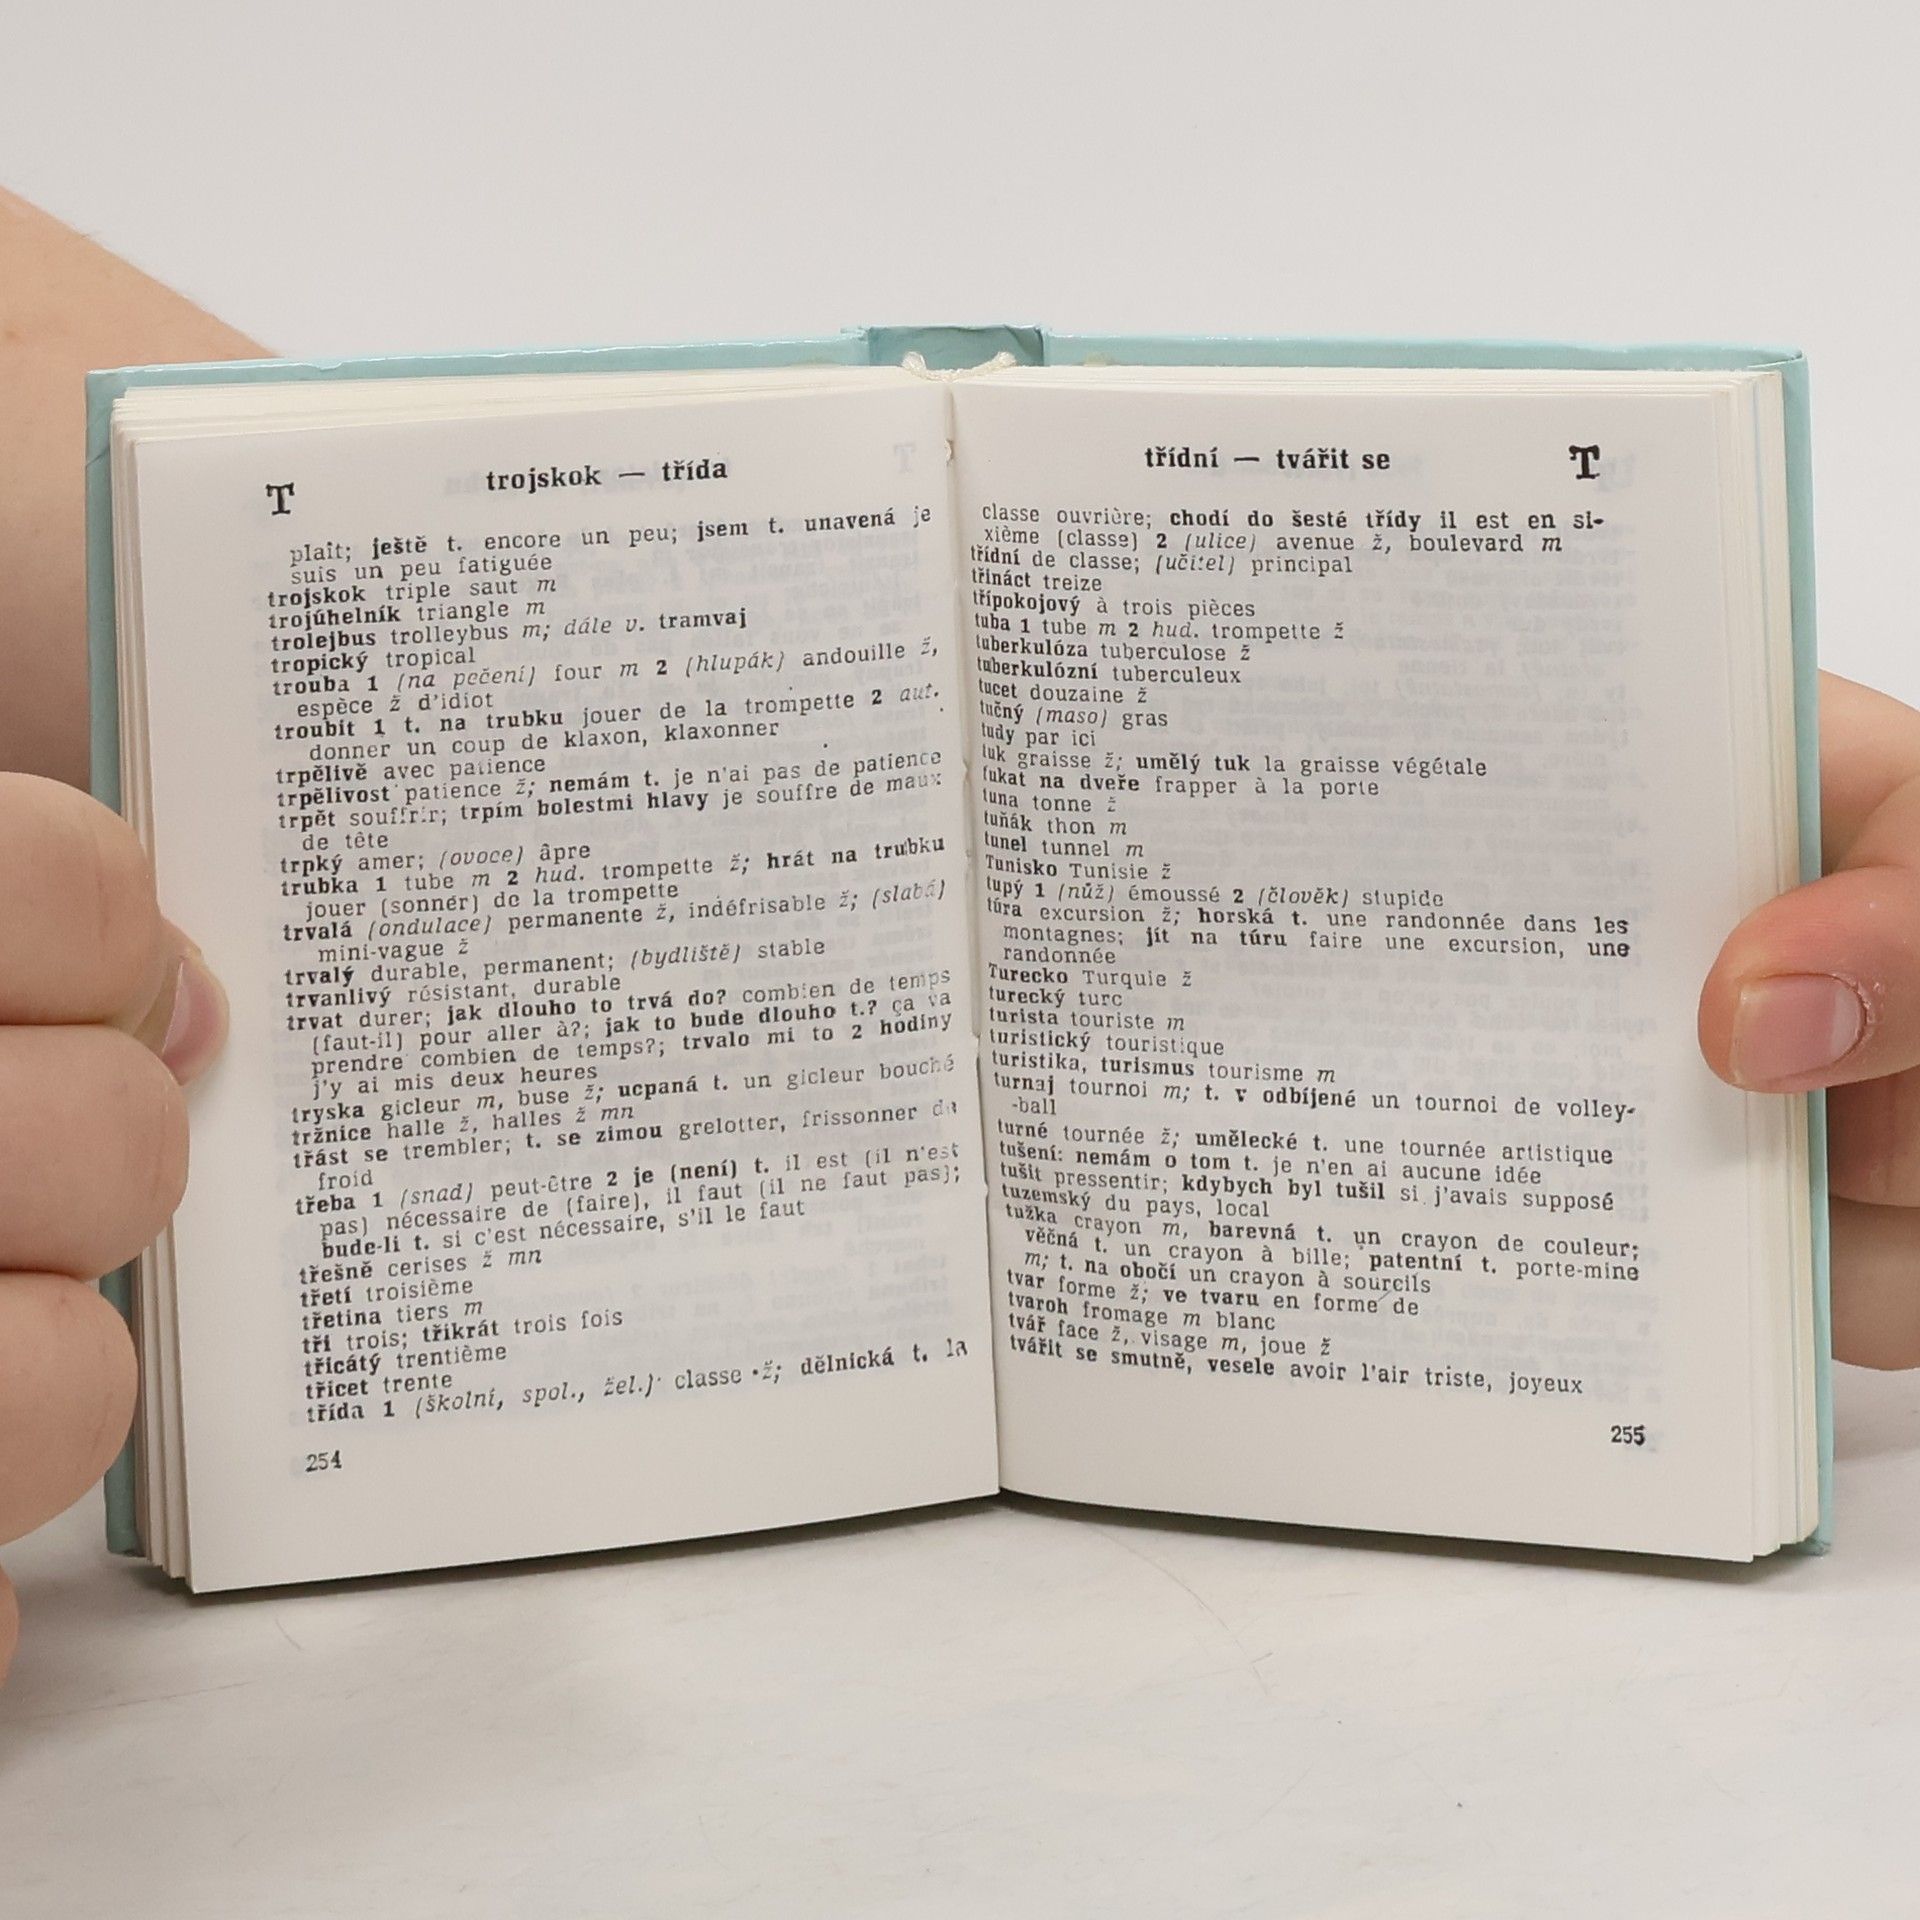 T
trojskok — třída
plaît; ještě t. encore un peu; jsem t. unavená je
suis un peu fatiguée
trojskok triple saut m
trojúhelník triangle m
trolejbus trolleybus m; dále v. tramvaj
tropický tropical
trouba 1 (na pečení) four m 2 (hlupák) andouille ž,
espèce ž d'idiot
troubit 1 t. na trubku jouer de la trompette 2 aut.
donner un coup de klaxon, klaxonner
trpělivě avec patience
trpělivost patience ž; nemám t. je n'ai pas de patience
trpět souffrir; trpím bolestmi hlavy je souffre de maux
de tête
trpký amer; (ovoce) âpre
trubka 1 tube m 2 hud. trompette ž; hrát na trubku
jouer (sonner) de la trompette
trvalá (ondulace) permanente ž, indéfrisable ž; (slabá)
mini-vague ž
trvalý durable, permanent; (bydliště) stable
trvanlivý résistant, durable
trvat durer; jak dlouho to trvá do? combien de temps
(faut-il) pour aller à?; jak to bude dlouho t.? ça va
prendre combien de temps?; trvalo mi to 2 hodiny
j'y ai mis deux heures
tryska gicleur m, buse ž; ucpaná t. un gicleur bouché
tržnice halle ž, halles ž mn
třást se trembler; t. se zimou grelotter, frissonner de
froid
třeba 1 (snad) peut-être 2 je (není) t. il est (il n'est
pas) nécessaire de (faire), il faut (il ne faut pas);
bude-li t. si c'est nécessaire, s'il le faut
třešně cerises ž mn
třetí troisième
třetina tiers m
tři trois; třikrát trois fois
třicátý trentième
třicet trente
třída 1 (školní, spol., žel.) classe ž; dělnická t. la
254
třídní — tvářit se
T
classe ouvrière; chodí do šesté třídy il est en si-
xième (classe) 2 (ulice) avenue ž, boulevard m
třídní de classe; (učitel) principal
třináct treize
třípokojový à trois pièces
tuba 1 tube m 2 hud. trompette ž
tuberkulóza tuberculose ž
tuberkulózní tuberculeux
tucet douzaine ž
tučný (maso) gras
tudy par ici
tuk graisse ž; umělý tuk la graisse végétale
ťukat na dveře frapper à la porte
tuna tonne ž
tuňák thon m
tunel tunnel m
Tunisko Tunisie ž
tupý 1 (nůž) émoussé 2 (člověk) stupide
túra excursion ž; horská t. une randonnée dans les
montagnes; jít na túru faire une excursion, une
randonnée
Turecko Turquie ž
turecký turc
turista touriste m
turistický touristique
turistika, turismus tourisme m
turnaj tournoi m; t. v odbíjené un tournoi de volley-
-ball
turné tournée ž; umělecké t. une tournée artistique
tušení: nemám o tom t. je n'en ai aucune idée
tušit pressentir; kdybych byl tušil si j'avais supposé
tuzemský du pays, local
tužka crayon m, barevná t. un crayon de couleur;
věčná t. un crayon à bille; patentní t. porte-mine
m; t. na obočí un crayon à sourcils
tvar forme ž; ve tvaru en forme de
tvaroh fromage m blanc
tvář face ž, visage m, joue ž
tvářit se smutně, vesele avoir l'air triste, joyeux
255